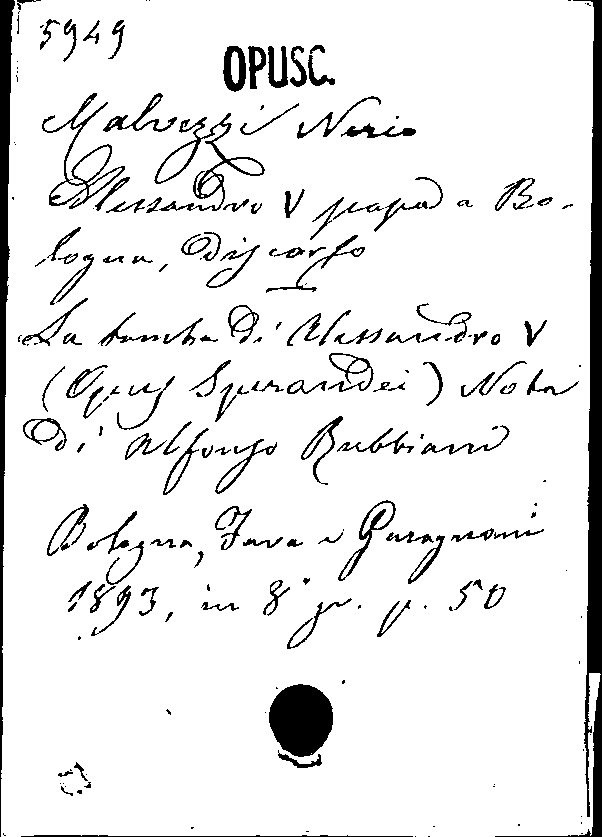 5949
OPUSC.
Malvezzi Nerio
Alessandro V papa a Bo-
logna, Discorso
La tomba di Alessandro V
(Opus Sperandei) Nota
di Alfonso Rubbiani
Bologna, Fava e Garagnani
1893, in 8° gr. p. 50